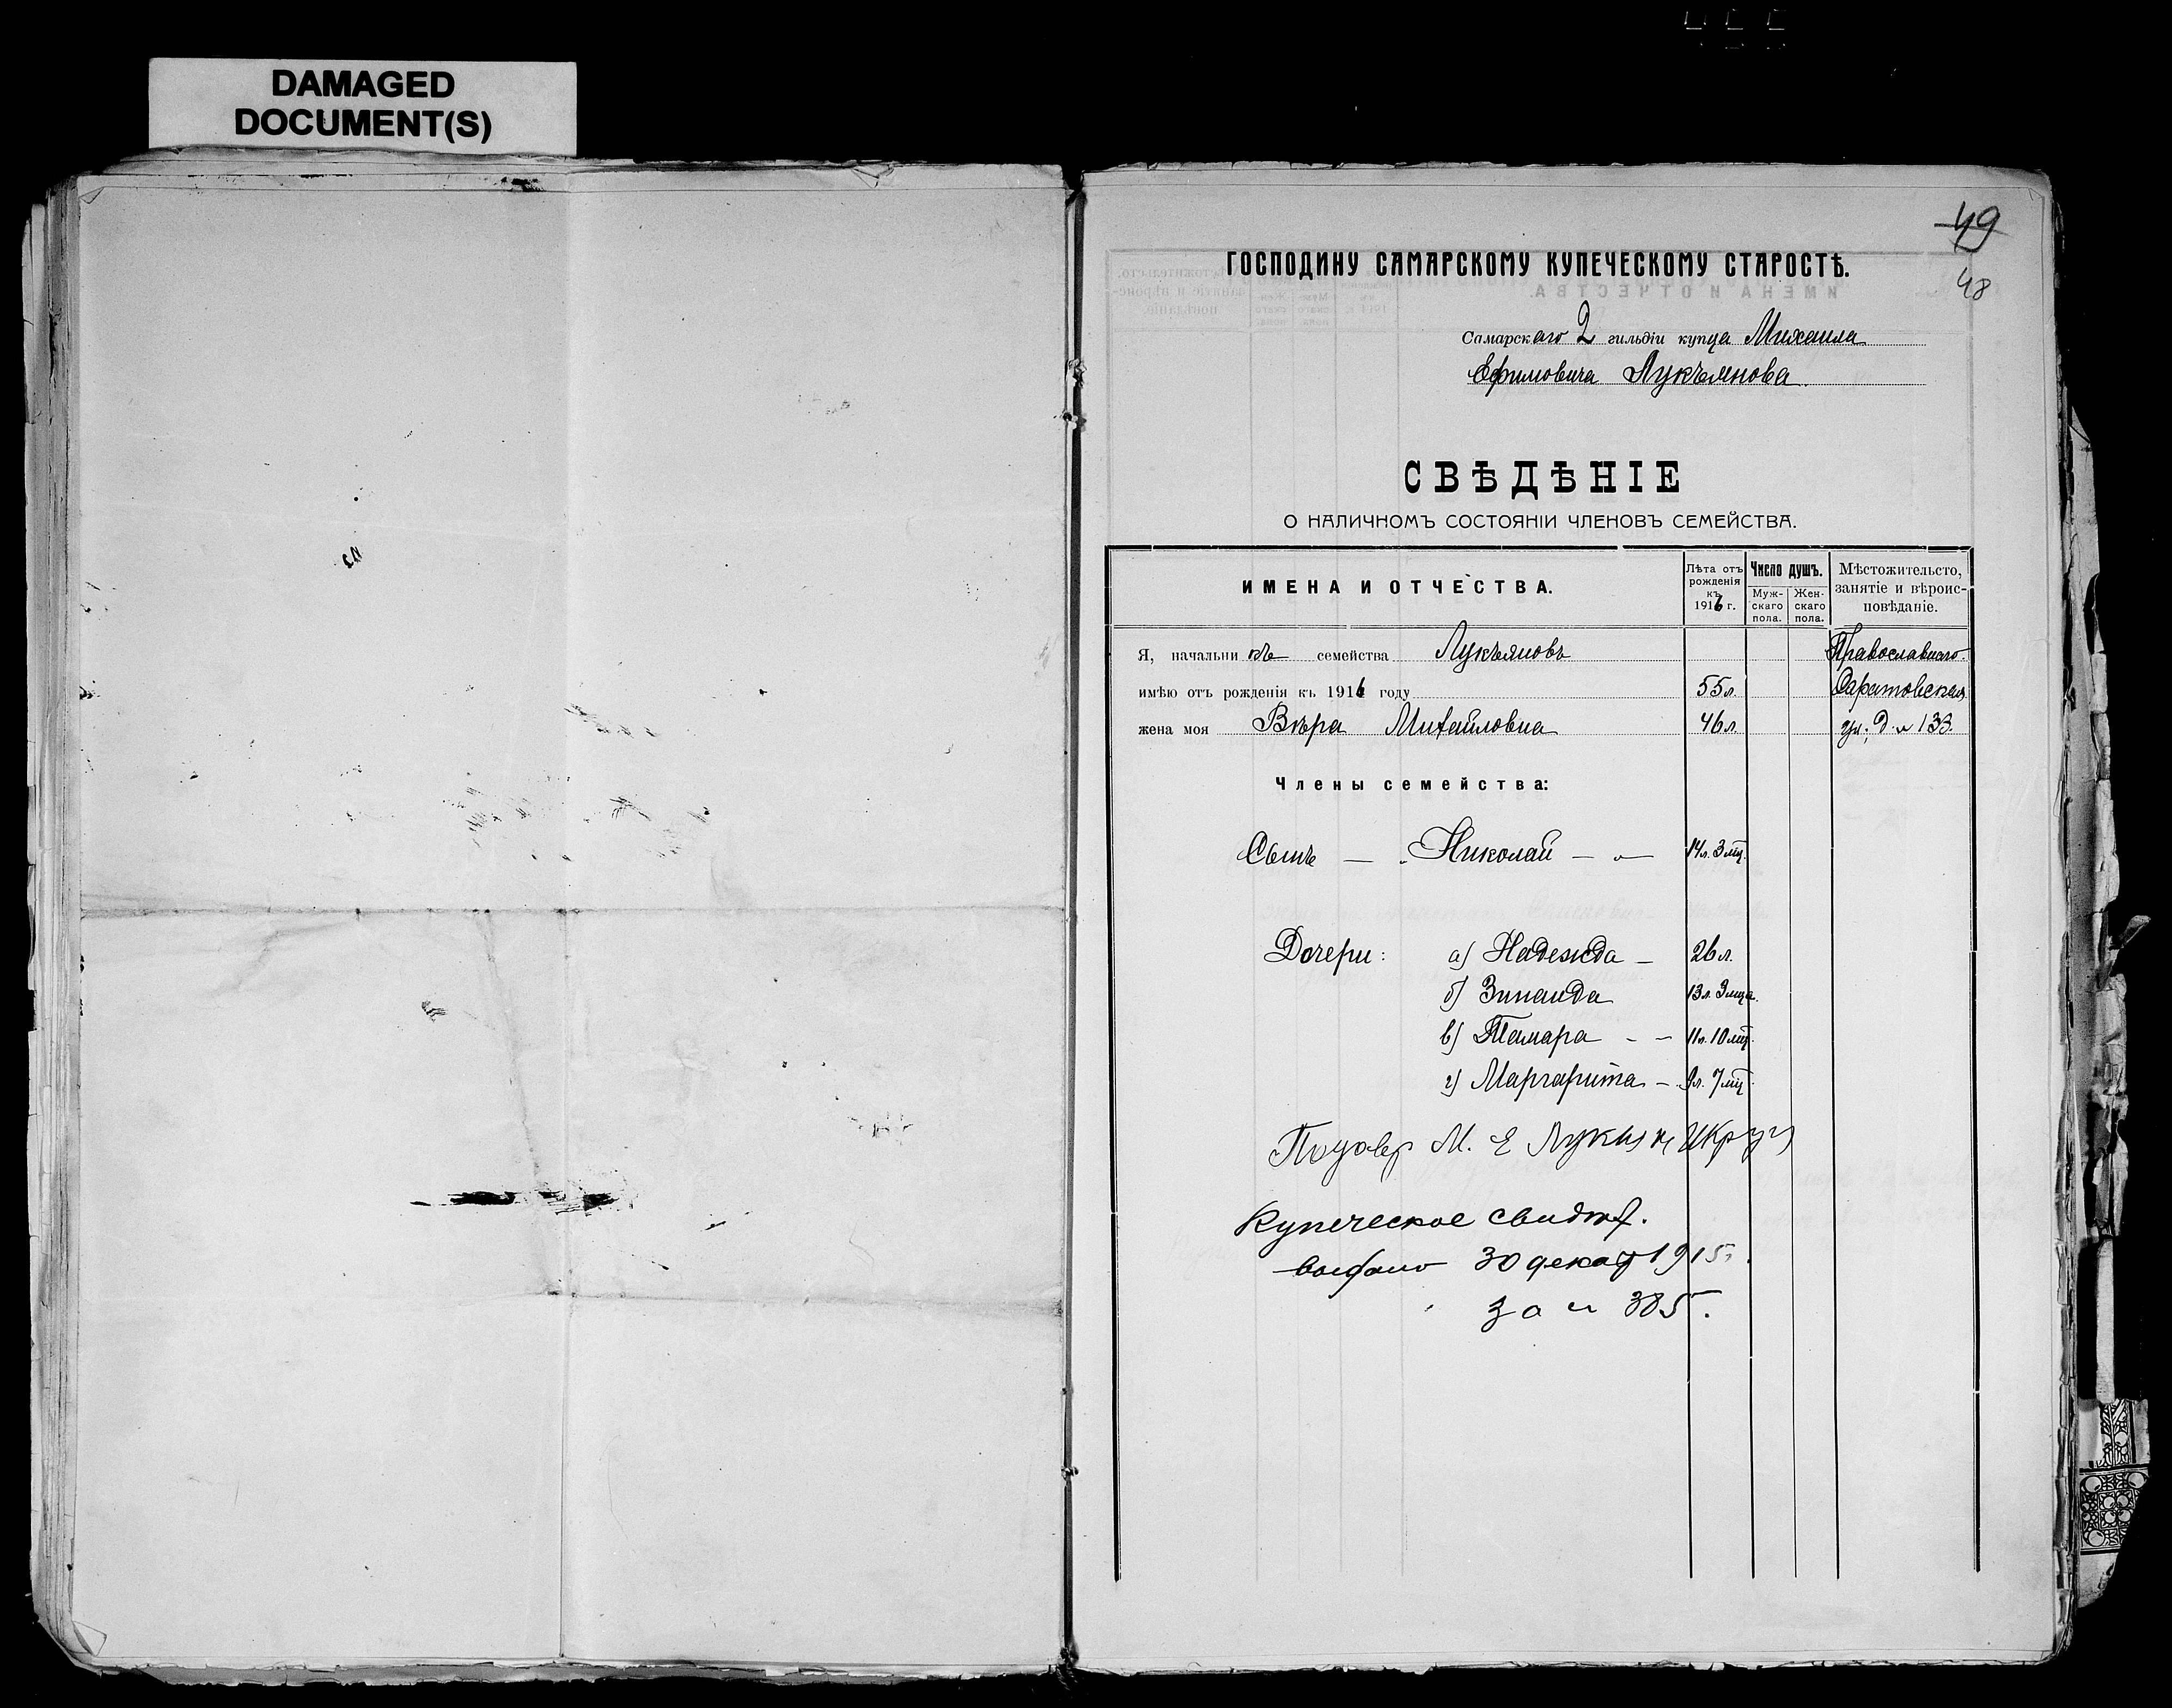 DAMAGED
DOCUMENT(S)
49
48
ГОСПОДИНУ САМАРСКОМУ КУПЕЧЕСКОМУ СТАРОСТѢ.
Самарскаго 2 гильдіи купца Михаила
Ефимовича Лукъянова.
СВѢДѢНІЕ
О НАЛИЧНОМЪ СОСТОЯНІИ ЧЛЕНОВЪ СЕМЕЙСТВА.
ИМЕНА И ОТЧЕСТВА.
Лѣта отъ рожденія къ 1916 г.
Число душъ.
Мужскаго пола.
Женскаго пола.
Мѣстожительсто, занятіе и вѣроисповѣданіе.
Я, начальникъ семейства Лукъяновъ Православнаго.
имѣю отъ рожденія къ 1916 году 55 л. Саратовская
жена моя Вѣра Михайловна 46 л. ул., д. № 133.
Члены семейства:
Сынъ — Николай — 14 л. 3 мц.
Дочери: а) Надежда — 26 л.
б) Зинаида 13 л. 3 мца.
в) Тамара - - 11 л. 10 мц.
г) Маргарита - 9 л. 7 мц.
М. Е
Купеческое свидет.
30 декаб 1915
за № 385.